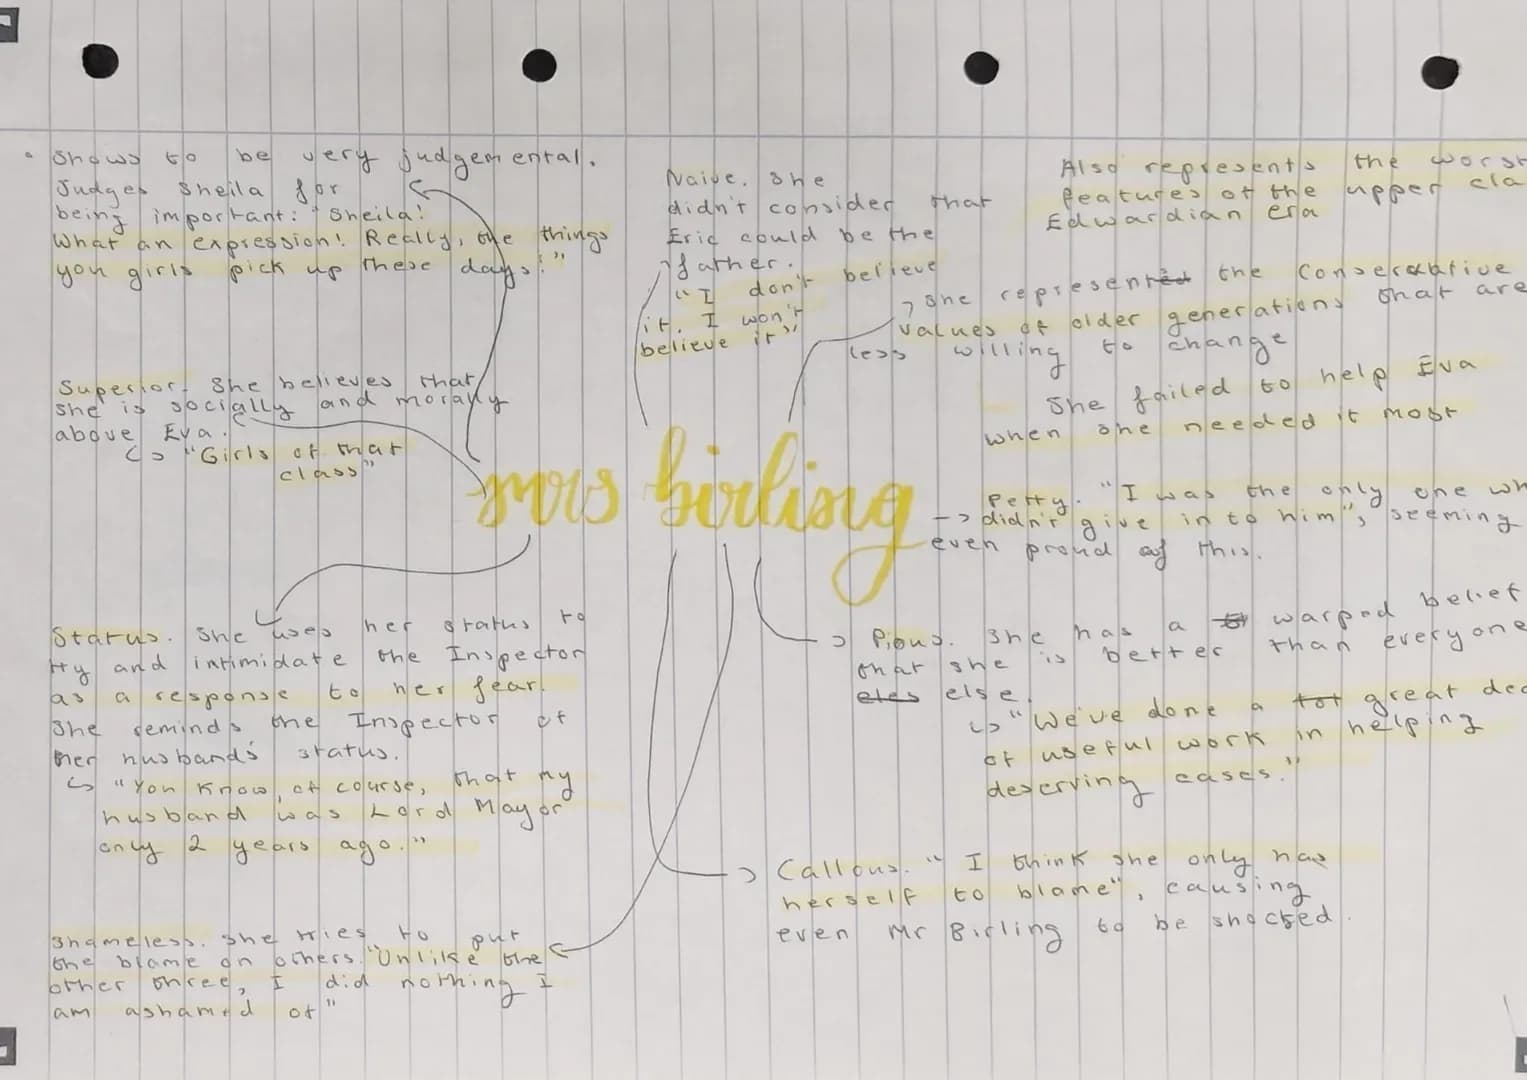 • Shows to be very judgemental.
Judges Sheila for
being important: "Sheila!
What an expression! Really, the things
you girls pick up these days!"
Superior. She believes that
she is socially and morally
above Eva.
↳ "Girls of that
class"
Status. She uses her status to
try and intimidate the Inspector
as a response to her fear.
She reminds the Inspector of
her husband's status.
↳ "You know, of course, that my
husband was Lord Mayor
only 2 years ago."
Shameless. She tries to put
the blame on others. "Unlike the
other three, I did nothing I
am ashamed of"
Naive. She
didn't consider that
Eric could be the
father.
"I don't believe
it. I won't
believe it"
mrs birling
Also represents the worst
features of the upper cla
Edwardian era
→ She represented the Conservative
values of older generations that are
less willing to change
She failed to help Eva
when she needed it most
Petty. "I was the only one wh
→ didn't give in to him", seeming
even proud of this.
→ Pious. She has a warped belief
that she is better than everyone
eles else.
↳ "We've done a tot great dea
of useful work in helping
deserving cases."
→ Callous. "I think she only has
herself to blame", causing
even Mr Birling to be shocked.